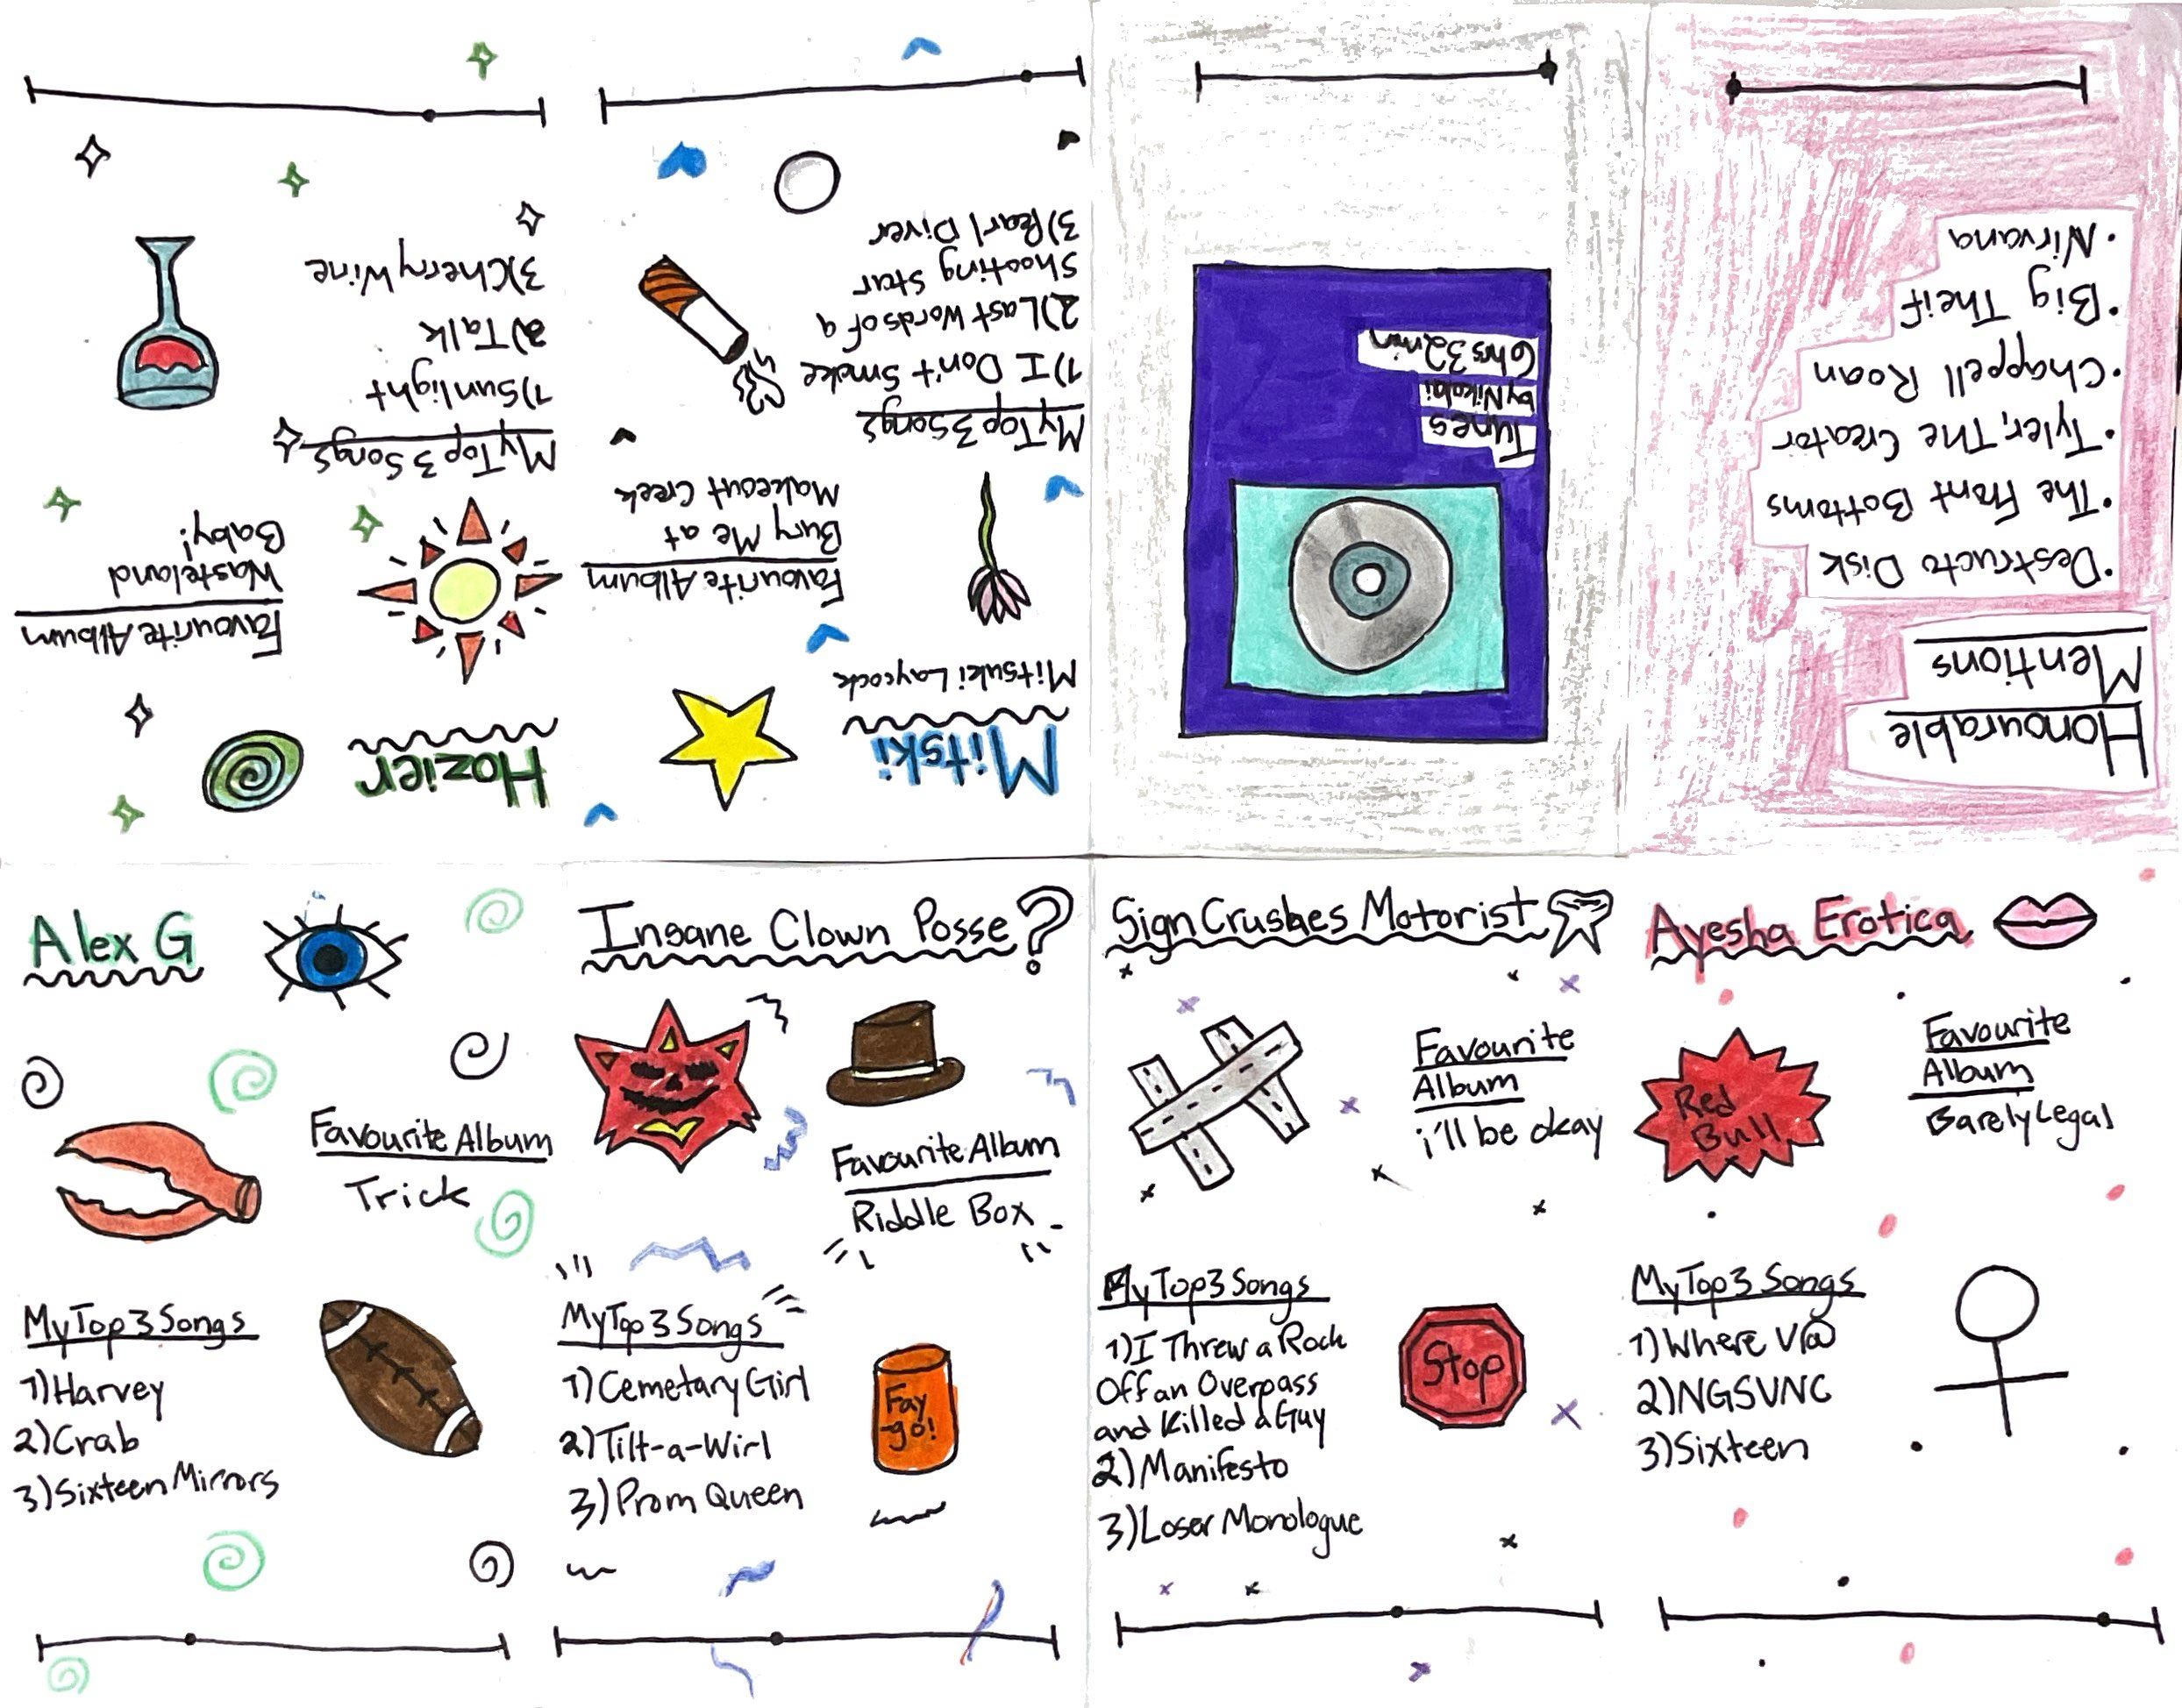 Tunes
by Nikolai
6hrs 32min
Mitski
Mitsuki Laycock
Favourite Album
Bury Me at
Makeout Creek
My Top 3 Songs
1) I Don't Smoke
2) Last Words of a
Shooting Star
3) Pearl Diver
Hozier
Favourite Album
Wasteland
Baby!
My Top 3 Songs
1) Sunlight
2) Talk
3) Cherry Wine
Alex G
Favourite Album
Trick
My Top 3 Songs
1) Harvey
2) Crab
3) Sixteen Mirrors
Insane Clown Posse?
Favourite Album
Riddle Box
My Top 3 Songs
1) Cemetary Girl
2) Tilt-a-Wirl
3) Prom Queen
Fay
-go!
Sign Crushes Motorist
Favourite
Album
i'll be okay
My Top 3 Songs
1) I Threw a Rock
Off an Overpass
and Killed a Guy
2) Manifesto
3) Loser Monologue
Stop
Ayesha Erotica
Red
Bull
Favourite
Album
Barely Legal
My Top 3 Songs
1) Where
2) NGSVNC
3) Sixteen
Honourable
Mentions
• Destructo Disk
• The Front Bottoms
• Tyler, The Creator
• Chappell Roan
• Big Theif
• Nirvana